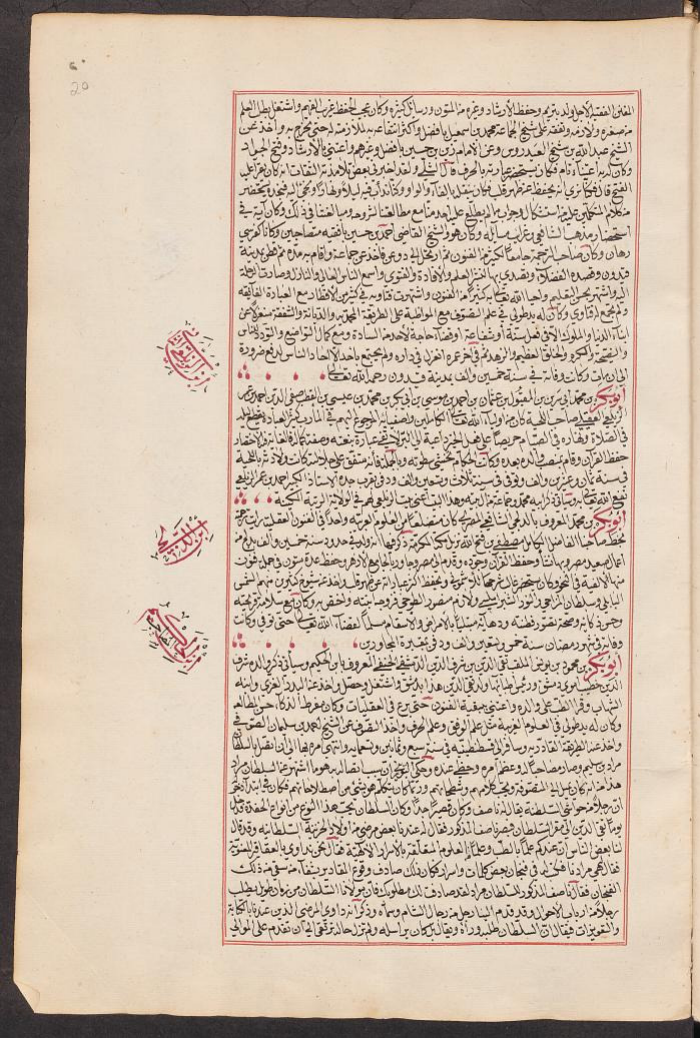 20
المفنن الفقيه الاجل ولد بتريم وحفظ الارشاد وغيره من المتون ورسائل كثيره وكان عجيب الحفظ غريب الفهم واشتغل بطلب العلم
من صغره ولازمه وتفقه على شيخ الجماعة محمد بن اسمعيل بافضل واكثر انتفاعه به للازمته له حتى تخرج به واخذ عن
الشيخ عبد الله بن شيخ العيدروس وعن الامام زين بن حسين بافضل وغيرهم واعتنى بالارشاد وفتح الجواد
وكان له به اعتناء تام فكان يستحضر عبارته بالحرف قال الشلي ولقد اخبرني بعض تلامذته الثقات انه كان يقرا عليه
الفتح قال فكان تراى انه يحفظه عن ظهر قلب
من كلام المتكلمين عليه من استشكال وجواب ما لم يطلع عليه احد منا مع مطالعتنا لشروحه ومبالغتنا في ذلك وكان آية في
استحضار مذهب الشافعي وغرايب مسائله وكان هو والشيخ القاضي احمد بن حسين بافقيه متصاحبين وكانا كفرسي
رهان وكان صاحب الترجمة جامعا لكثير من الفنون ثم ارتحل الى دوعن فاخذ عن جماعة واقام به مدة ثم قطن بمدينة
قيدون وقصده الفضلاء وتصدى بها لنشر العلم والافادة والفتوى واسمع الناس العالي والنازل وصارت الرحلة
اليه واشتهر بحسن التعليم واحيا الله تعالى به كثيرا من الفنون واشتهرت فتاويه في كثير من الاقطار مع العبارة الفائقه
ولم يجمع له فتاوى وكان له يد طولى في علم التصوف مع المواظبة على الطريقة المحمدية والديانة والشفقة منعزلا عن
ابناء الدنيا والملوك الا في فعل سنة او شفاعة او قضا حاجة لاحد من السادة ومع كمال التواضع والتودد للناس
والخلق العظيم والزهد ثم في اخر عمره انعزل في داره ولم يجتمع باحد الا احاد الناس لدفع ضرورة
الى ان مات وكانت وفاته في سنة خمسين والف بمدينة قيدون رحمه الله تعالى
ابو بكر بن محمد بن ابن المقبول بن عثمان بن احمد بن موسى بن ابي بكر بن محمد بن عيسى بن القطب صفي الدين احمد بن عمر
الزيلعي العقيلي صاحب اللحية كان من اولياء الله تعالى الكاملين واصفيائه المرجوع اليهم في المآرب كثير العبادة يقطع ليله
في الصلاة ونهاره في الصيام حريصا على فعل الخير داعية الى البر لا تفي عبارة بنعته وصفته كما له القا له في الاحضار
حفظ القران وقام بمنصب والده بعده وكانت الحكام تخشى سطوته وبالجملة فانه متفق على جلالته وكانت ولادته باللحية
في سنة ثمان وعشرين والف وتوفي في سنة ثلاث وسبعين والف ودفن بقرب جده الاستاذ الكبير احمد بن عمر الزيلعي
نفع الله تعالى به وسياتي ذكر ابيه محمد وجماعة من اهل بيته وهذا البيت اعني بيت الزيلعي لهم في الولاية الرتبة المكينة
ابو بكر بن محمد المعروف بالدلجي الشافعي المصري كان متضلعا من العلوم العربية واحد في الفنون العقلية رايت ترجمته
بخط صاحبنا الفاضل الكامل مصطفى بن فتح الله نزيل مكة المكرمة ذكر فيها انه ولد في حدود سنة خمسين والف بدلجة من
اعمال صعيد مصر وبها نشا وحفظ القران وجوده وقدم الى مصر وجاور بالجامع الازهر وحفظ عدة متون في جملة فنون
منها الالفية في النحو وكان يستحضر غالب شرحها للاشموني ويحفظ اكثر عباراته عن ظهر قلب واخذ عن شيوخ كثيرين منهم الشمس
البابلي وسلطان المزاحي والنور الشبراملسي ولازم منصور الطوخي فروى صحبته واختص به وكان مع سلامة قريحته
وجودة ذكائه وصحة تصور فطنته ودهائه مبتلى بالامراض والاسقام مسلما لقضاء الله تعالى حتى توفي وكانت
وفاته في شهر رمضان سنة خمس وتسعين والف ودفن بمقبرة المجاورين
ابو بكر بن محمود بن يونس الملقب تقي الدين بن شرف الدين الدمشقي الحنفي المعروف بابن الحكيم وسياتي ذكر والده شرف
الدين خطيب الاموي بدمشق ورئيس اطبائها ولد تقي الدين هذا بدمشق واشتغل وحصل واخذ عن البدر الغزي وابنه
الشهاب وقرا الطب على والده واعتنى ببقية الفنون حتى برع في العقليات وكان مفرط الذكاء حسن المطالعه
وكان له يد طولى في العلوم الغريبة مثل علم الوفق وعلم الحرف واخذ التصوف عن الشيخ احمد بن سليمان الصوفي
واخذ عنه الطريقة القادرية وسافر الى قسطنطينية في سنة سبع وثمانين وتسعماية وانتهى امره فيها الى ان اتصل بالسلطان
مراد بن سليم وصار مصاحبا له وعظم امره وحظي عنده وحكى البوريني ان سبب اتصاله به هو ما اشتهر عن السلطان مراد
هذا من انه كان يميل الى الصوفية ويحب كلامهم وشطحاتهم وربما كان يتكلم هو بشيء من اصطلاحاتهم فكان في ابتداء امره
ان رجلا من حواشي السلطنة يقال له ناصف وكان قصيرا جدا وكان السلطان يحب هذا النوع من انواع الحفدة دخل
يوما تقي الدين الى مقر السلطان فبصر ناصف المذكور فقال له عندنا بعض مرضى من اولاد الحرمة السلطانية وقد قال
لنا بعض الناس ان عندكم علما بالطب وعلما بالعلوم المتعلقة بالاسرار الالهية فقال نحن نداوي بالعقاقير المعنوية
فقال لهم مرادنا فكتب له في فنجان بعض كلمات واسرار فكان ذلك صادف وقوع المقادير بشفاء من سقي من ذلك
الفنجان فقال ناصف المذكور للسلطان مراد لقد صادف لك مطلوبك فان مولانا السلطان من زمان طويل يطلب
رجلا من ارباب الاحوال وقد قدم الينا رجل من رجال الشام وسماه وذكر انه داوى المرضى الذين عندنا بالكتابة
والتعويذات فيقال ان السلطان طلبه وراه ويقال بل كان يراسله ولم تزل حاله تترقى الى ان تقدم على الموالي